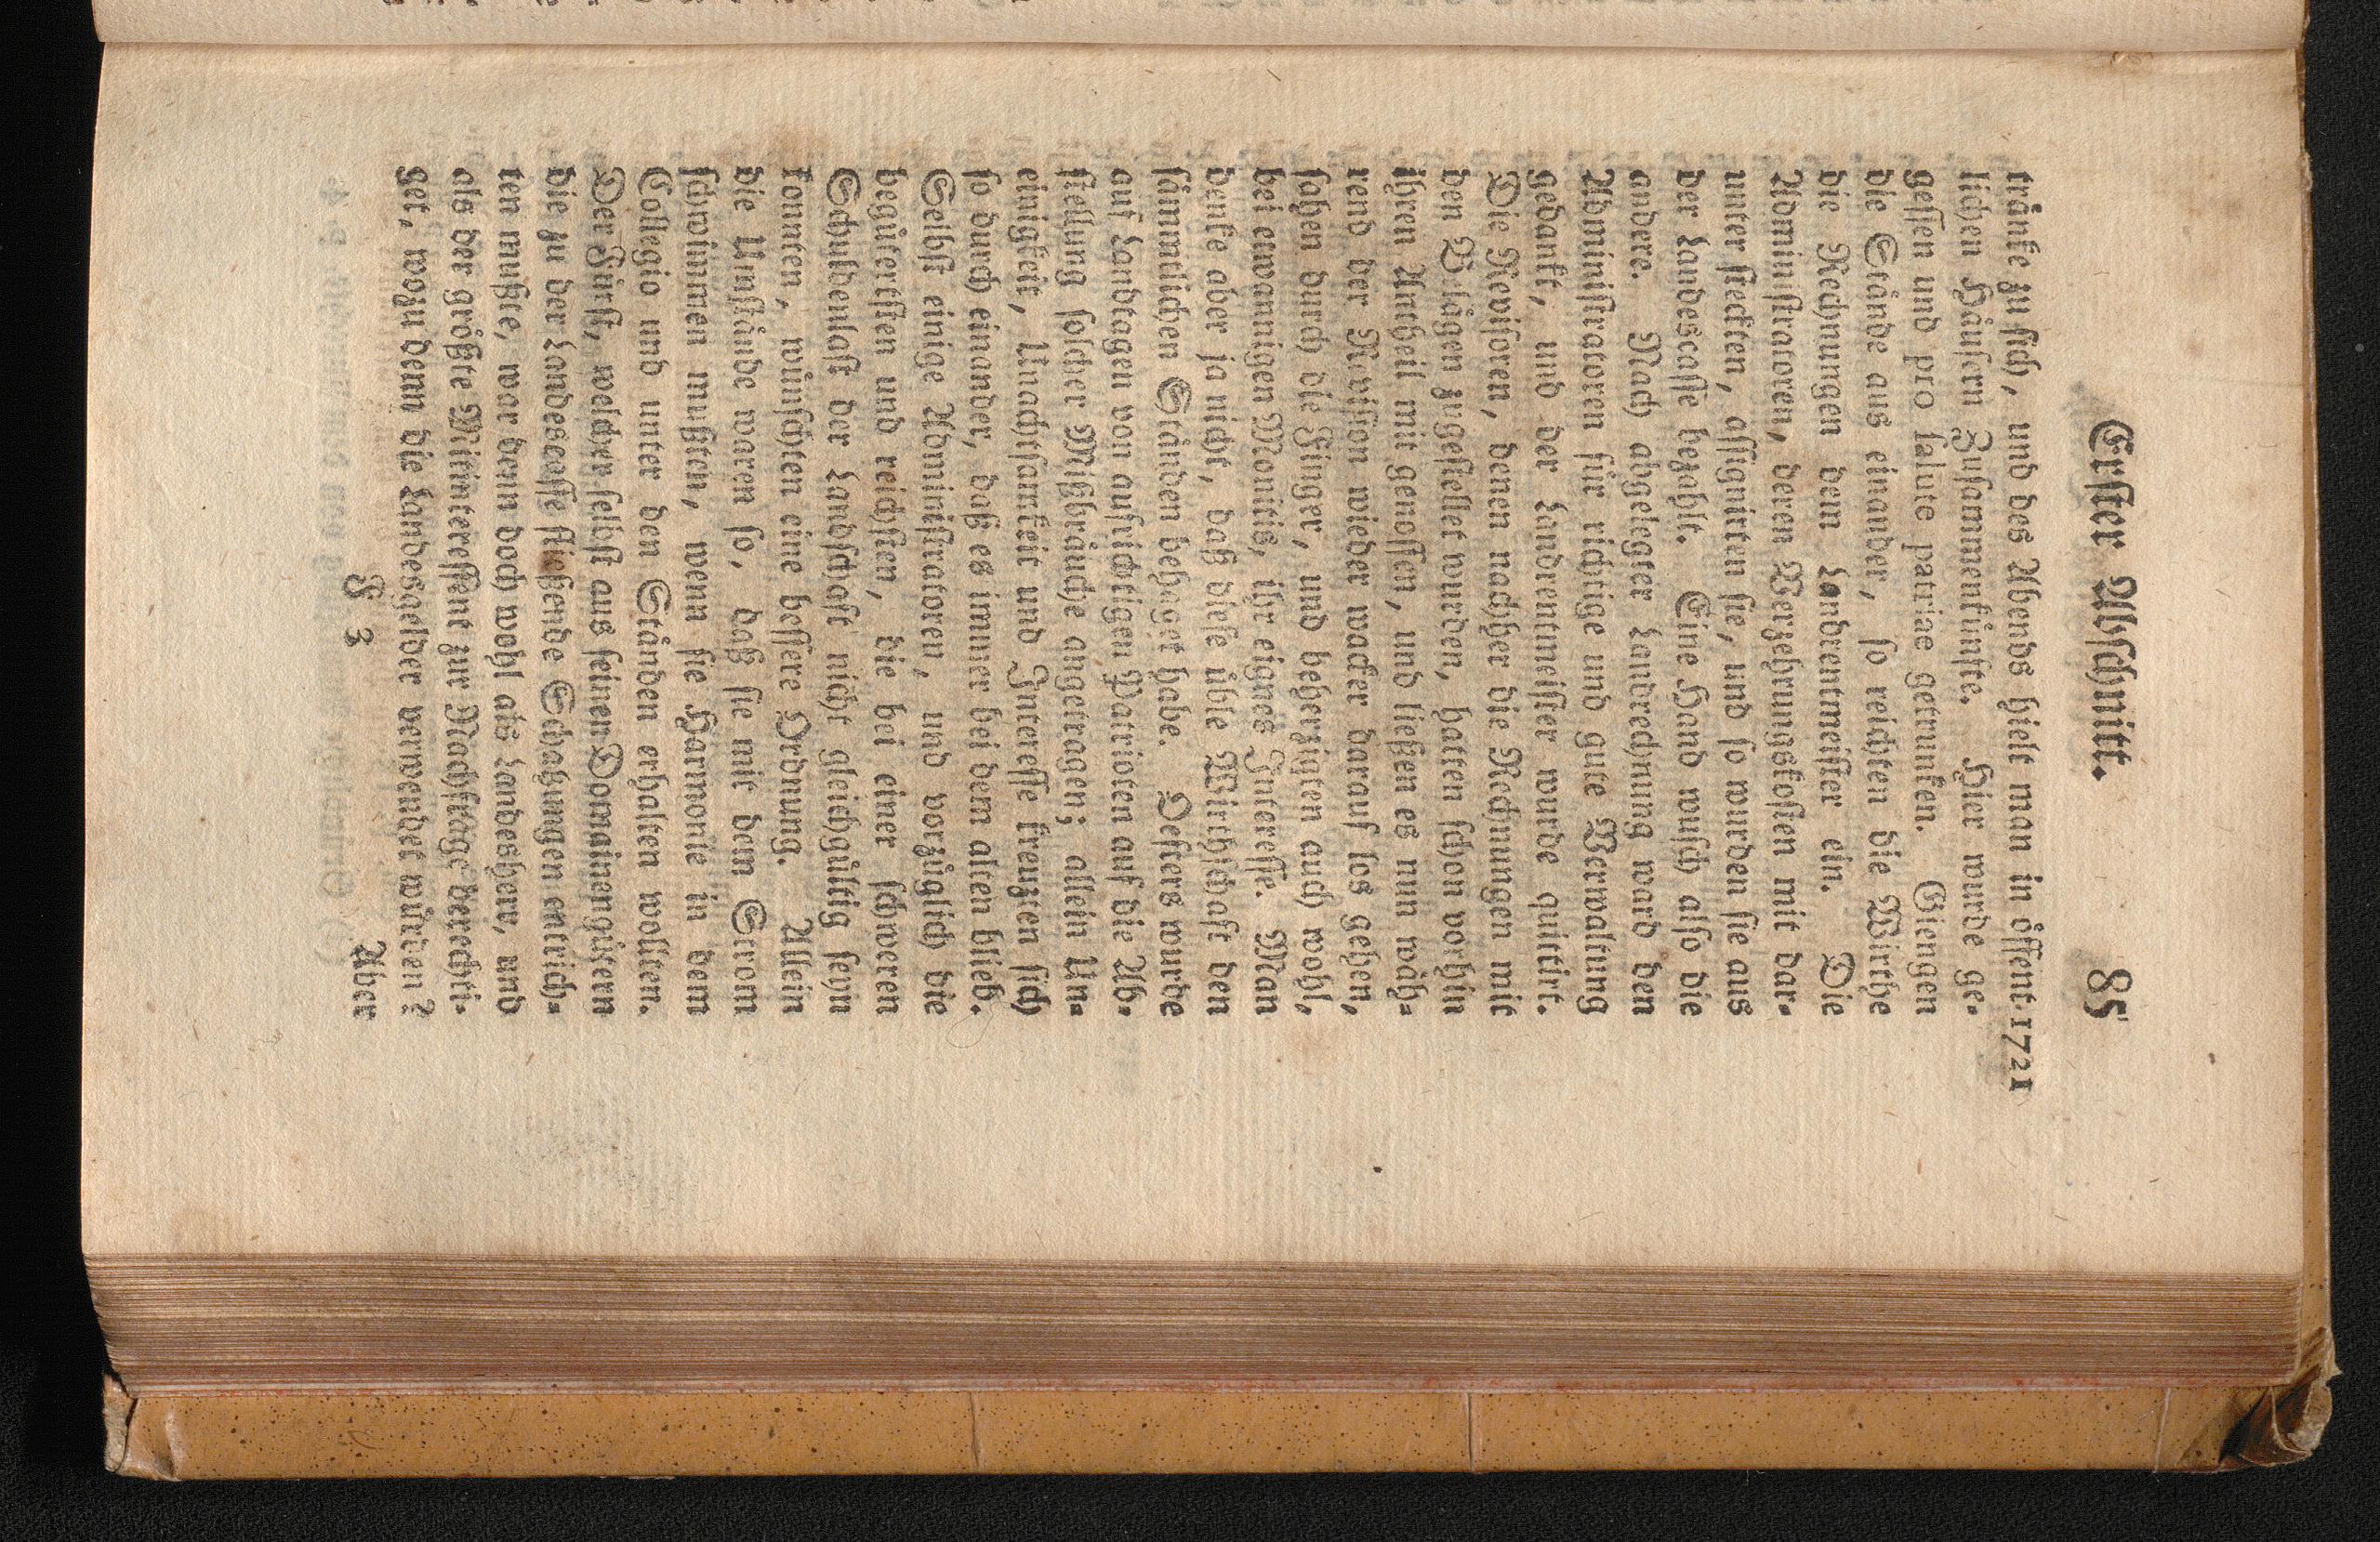 Erster Abschnitt. 85
tränke zu sich, und des Abends hielt man in öffent- 1721
lichen Häusern Zusammenkünfte. Hier wurde ge-
gessen und pro salute patriae getrunken. Giengen
die Stände aus einander, so reichten die Wirthe
die Rechnungen dem Landrentmeister ein. Die
Administratoren, deren Verzehrungskosten mit dar-
unter steckten, assignirten sie, und so wurden sie aus
der Landescasse bezahlt. Eine Hand wusch also die
andere. Nach abgelegter Landrechnung ward den
Administratoren für richtige und gute Verwaltung
gedankt, und der Landrentmeister wurde quittirt.
Die Revisoren, denen nachher die Rechnungen mit
den Belägen zugestellet wurden, hatten schon vorhin
ihren Antheil mit genossen, und ließen es nun wäh-
rend der Revision wieder wacker darauf los gehen,
sahen durch die Finger, und beherzigten auch wohl,
bei etwannigen Monitis, ihr eignes Interesse. Man
denke aber ja nicht, daß diese üble Wirthschaft den
sämmtlichen Ständen behaget habe. Oefters wurde
auf Landtagen von aufrichtigen Patrioten auf die Ab-
stellung solcher Mißbräuche angetragen; allein Un-
einigkeit, Unachtsamkeit und Interesse kreuzten sich
so durch einander, daß es immer bei dem alten blieb.
Selbst einige Administratoren, und vorzüglich die
begütertsten und reichsten, die bei einer schweren
Schuldenlast der Landschaft nicht gleichgültig seyn
konnten, wünschten eine bessere Ordnung. Allein
die Umstände waren so, daß sie mit dem Strom
schwimmen mußten, wenn sie Harmonie in dem
Collegio und unter den Ständen erhalten wollten.
Der Fürst, welcher selbst aus seinen Domainengütern
die zu der Landescasse fließende Schatzungen entrich-
ten mußte, war denn doch wohl als Landesherr, und
als der größte Mitinteressent zur Nachfrage berechti-
get, wozu denn die Landesgelder verwendet würden?
F 3 Aber